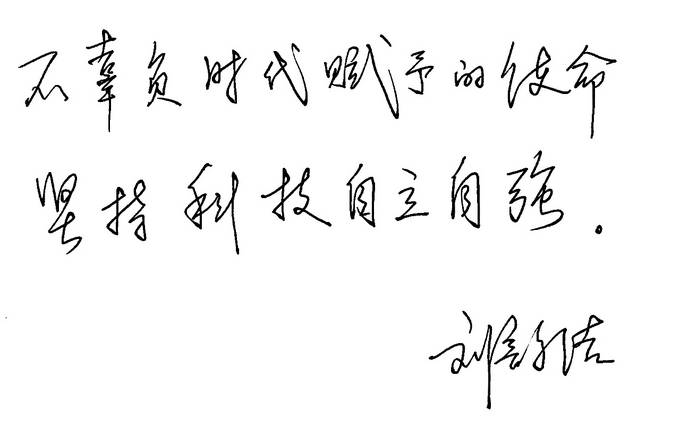 不辜负时代赋予的使命
坚持科技自立自强.